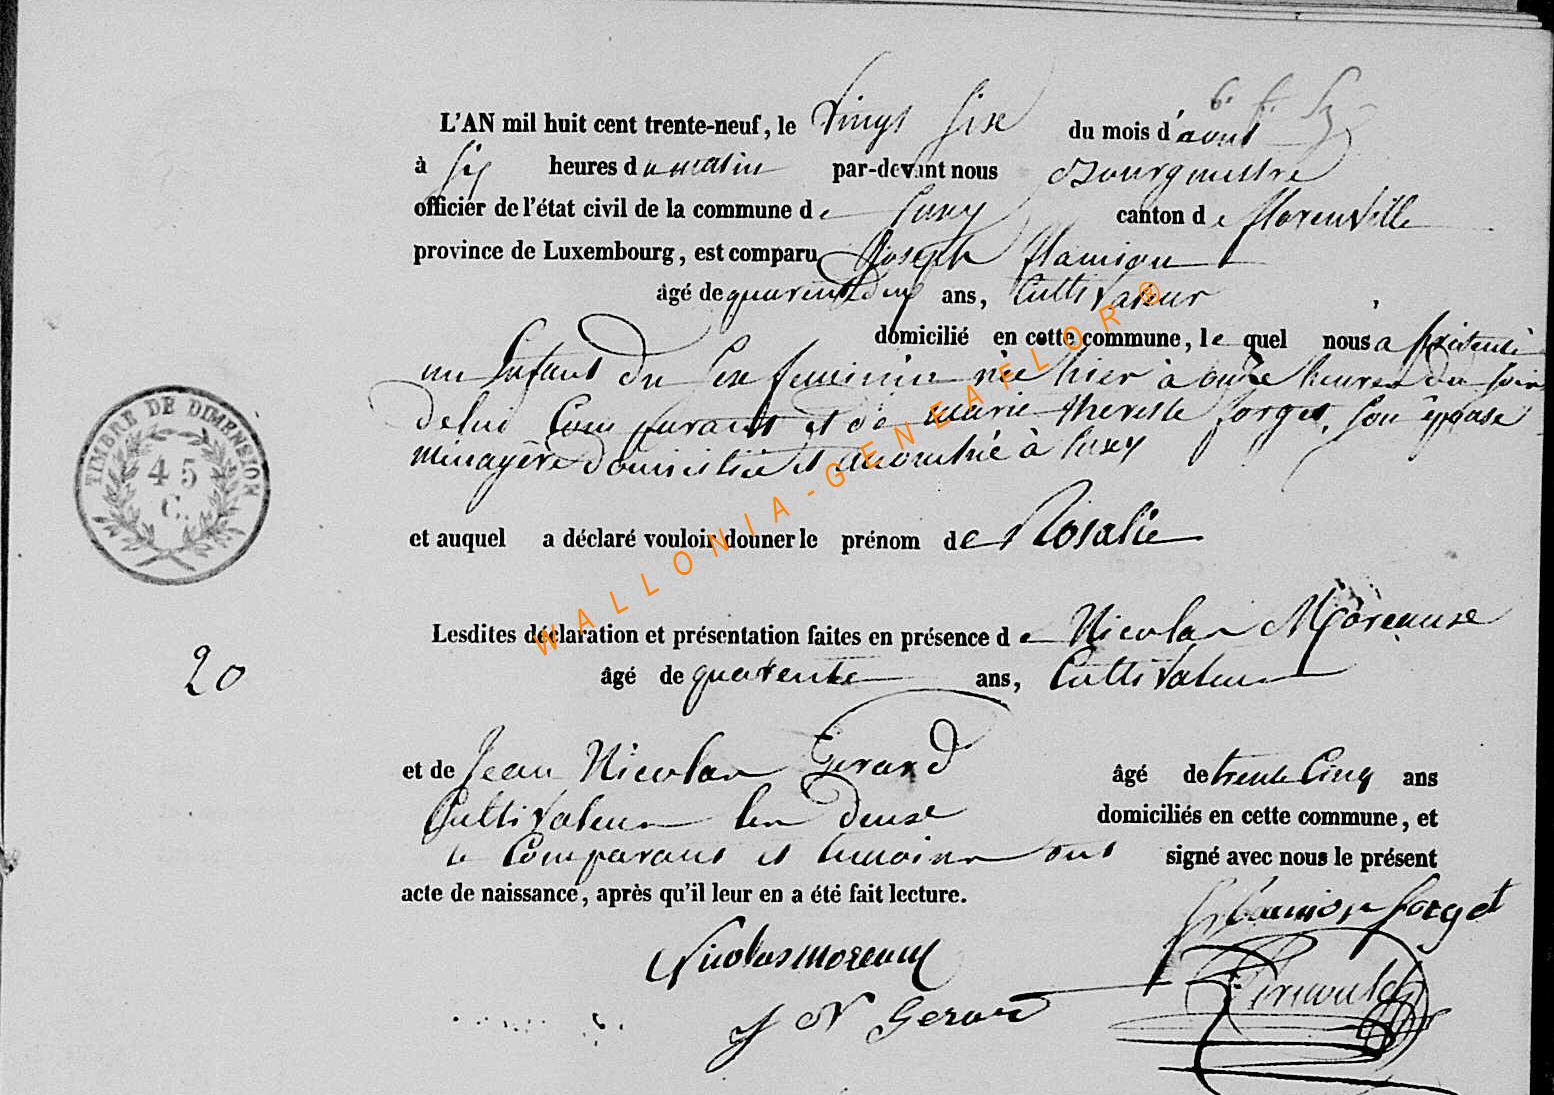 L'AN mil huit cent trente-neuf, le vingt sise du mois d'aout
à six heures du matin par-devant nous Bourgmestre
officier de l'état civil de la commune de Suxy canton de florenville
province de Luxembourg, est comparu Joseph Hamion
âgé de quarente deux ans, Cultivateur
domicilié en cette commune, le quel nous a présenté
un Enfant du sexe feminin née hier à onze heures du soir
de lui Comparant et de marie therese forget, son épouse
ménagère domiciliée et accouchée à suxy
et auquel a déclaré vouloir donner le prénom de Rosalie
TIMBRE DE DIMENSION
45
C.
Lesdites déclaration et présentation faites en présence de Nicolas Moreause
20
âgé de quarente ans, Cultivateur
et de Jean Nicolas Gerard âgé de trente Cinq ans
Cultivateur les deux domiciliés en cette commune, et
le Comparant et temoins ont signé avec nous le présent
acte de naissance, après qu'il leur en a été fait lecture.
forget
Nicolas moreaux
J N Gerard
WALLONIA-GENEAFLOR®